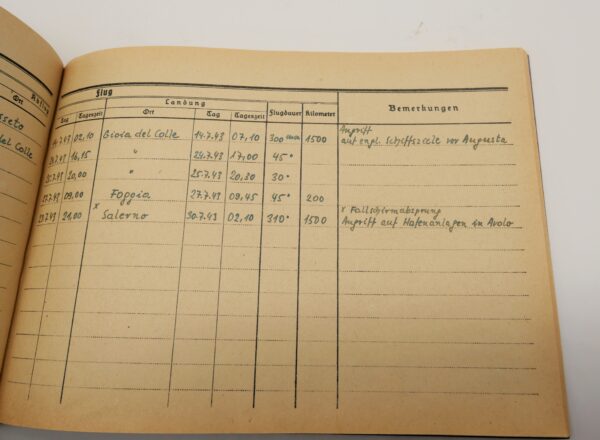 Flug
Landung
Ort Tag Tagenzeit Ort Tag Tagenzeit Flugdauer Kilometer Bemerkungen
Angriff
14.7.43 02,10 Gioia del Colle 14.7.43 07,10 300 1500 auf engl. Schiffsziele vor Augusta
24.7.43 16,15 " 24.7.43 17,00 45"
25.7.43 20,00 " 25.7.43 20,30 30"
27.7.43 09,00 Foggia 27.7.43 09,45 45" 200
x Fallschirmabsprung
29.7.43 21,00 x Salerno 30.7.43 02,10 310" 1500 Angriff auf Hafenanlagen in Avola
sseto
del Colle